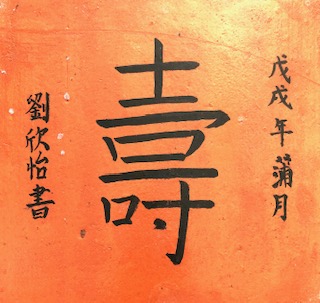 戊戌年蒲月
壽
劉欣怡書